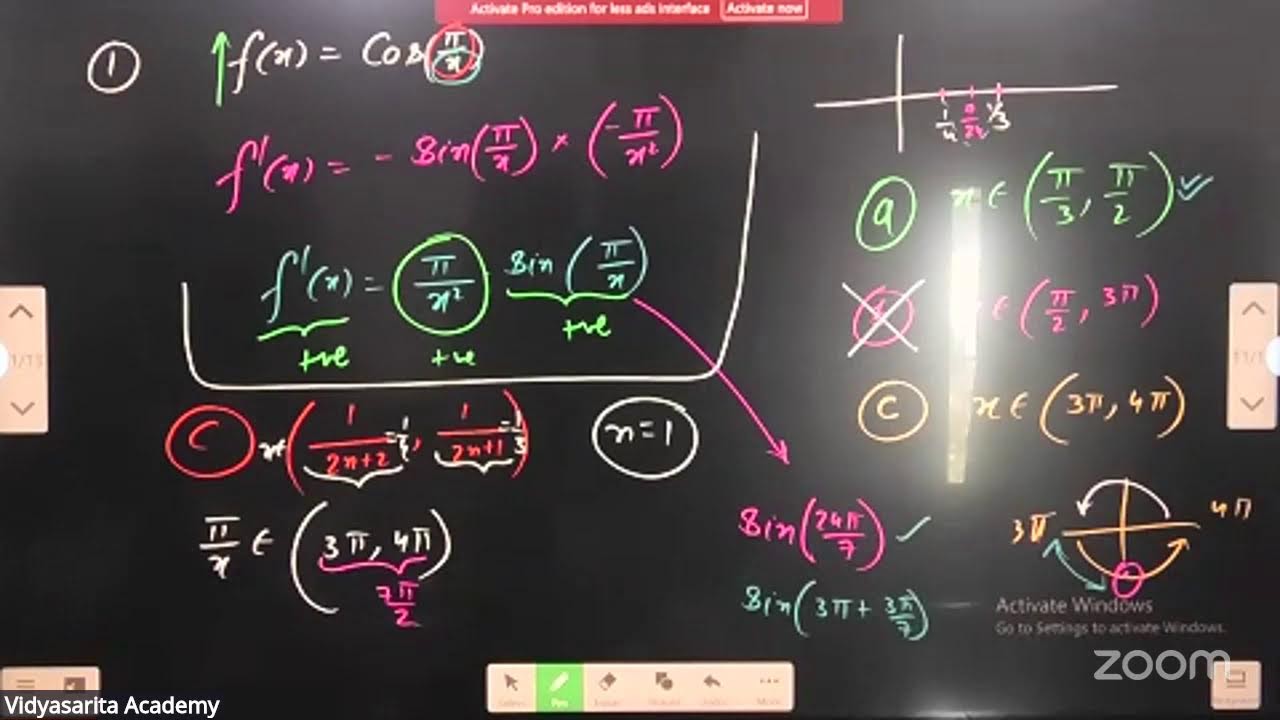 Activate Pro edition for less ads interface Activate now
① f(x) = Cos(π/x)
f'(x) = - Sin(π/x) × (-π/x²)
f'(x) = π/x² Sin(π/x)
+ve +ve +ve
C x∈(1/(2n+2) = 1/4, 1/(2n+1) = 1/3) n=1
π/x ∈ (3π, 4π)
7π/2
1/4 1/3
a x ∈ (π/3, π/2) ✓
∈ (π/2, 3π)
C x ∈ (3π, 4π)
3π 4π
Sin(24π/7) ✓
Sin(3π + 3π/7)
Activate Windows
Go to Settings to activate Windows.
zoom
Pen
Vidyasarita Academy